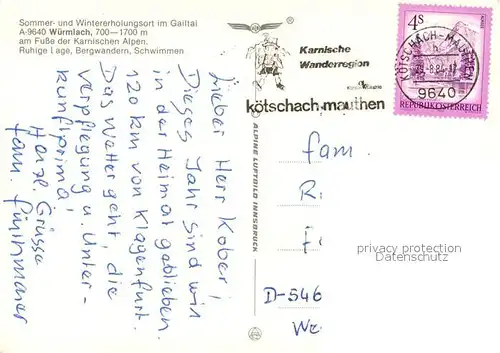 Sommer- und Wintererholungsort im Gailtal
A-9640 Würmlach, 700—1700 m
am Fuße der Karnischen Alpen.
Ruhige Lage, Bergwandern, Schwimmen
Lieber Herr Kober!
Dieses Jahr sind wir
in der Heimat geblieben.
120 km von Klagenfurt.
Das Wetter geht, die
Verpflegung u. Unter-
kunft prima,
Herzl. Grüsse
fam.
ALPINE LUFTBILD INNSBRUCK
Karnische
Wanderregion
kötschach-mauthen
4S
REPUBLIK ÖSTERREICH
KÖTSCHACH-MAUTHEN
9640
fam.
R
F
D-546
We
privacy protection
Datenschutz